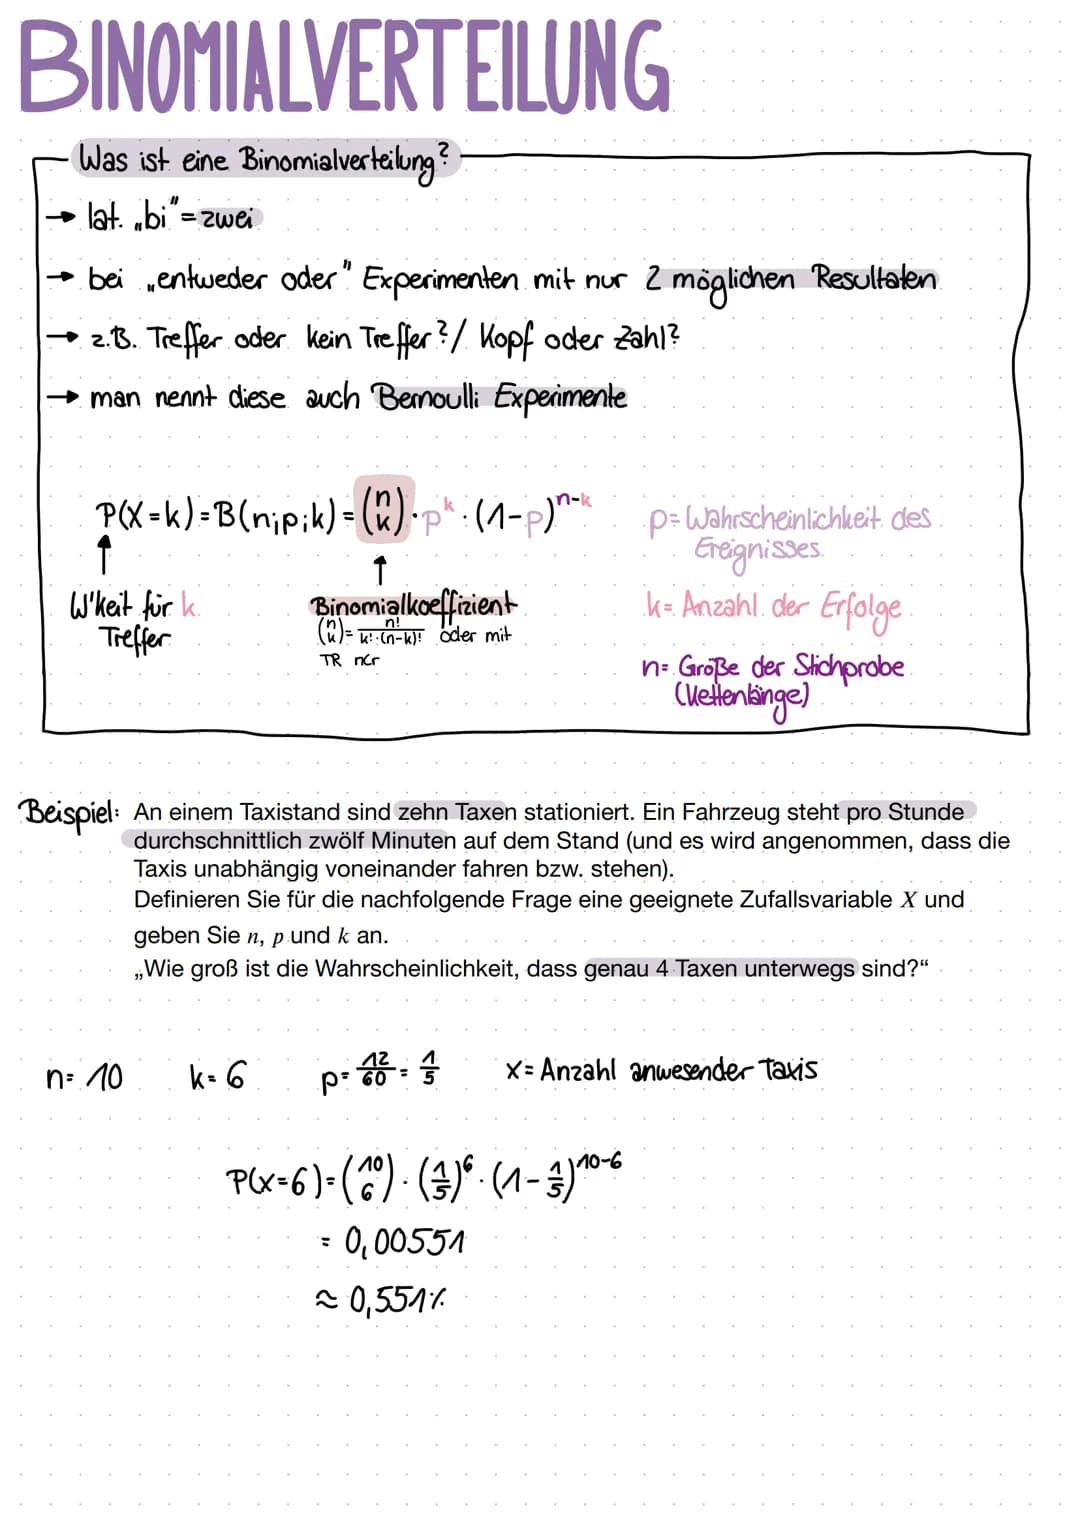 BINOMIALVERTEILUNG
Was ist eine Binomialverteilung?
→ lat. „bi" = zwei
→ bei „entweder oder" Experimenten mit nur 2 möglichen Resultaten
→ z.B. Treffer oder kein Treffer? / Kopf oder Zahl?
→ man nennt diese auch Bernoulli Experimente
P(X=k) = B(n;p;k) = (n k) · p^k · (1-p)^n-k
p = Wahrscheinlichkeit des
Ereignisses
↑ ↑
W'keit für k
Treffer
Binomialkoeffizient
(n k) = n! / k!·(n-k)! oder mit
TR nCr
k = Anzahl der Erfolge
n = Größe der Stichprobe
(Kettenlänge)
Beispiel: An einem Taxistand sind zehn Taxen stationiert. Ein Fahrzeug steht pro Stunde
durchschnittlich zwölf Minuten auf dem Stand (und es wird angenommen, dass die
Taxis unabhängig voneinander fahren bzw. stehen).
Definieren Sie für die nachfolgende Frage eine geeignete Zufallsvariable X und
geben Sie n, p und k an.
„Wie groß ist die Wahrscheinlichkeit, dass genau 4 Taxen unterwegs sind?“
n= 10 k= 6 p= 12/60 = 1/5 X= Anzahl anwesender Taxis
P(X=6) = (10 6) · (1/5)^6 · (1 - 1/5)^10-6
= 0,00551
≈ 0,551%